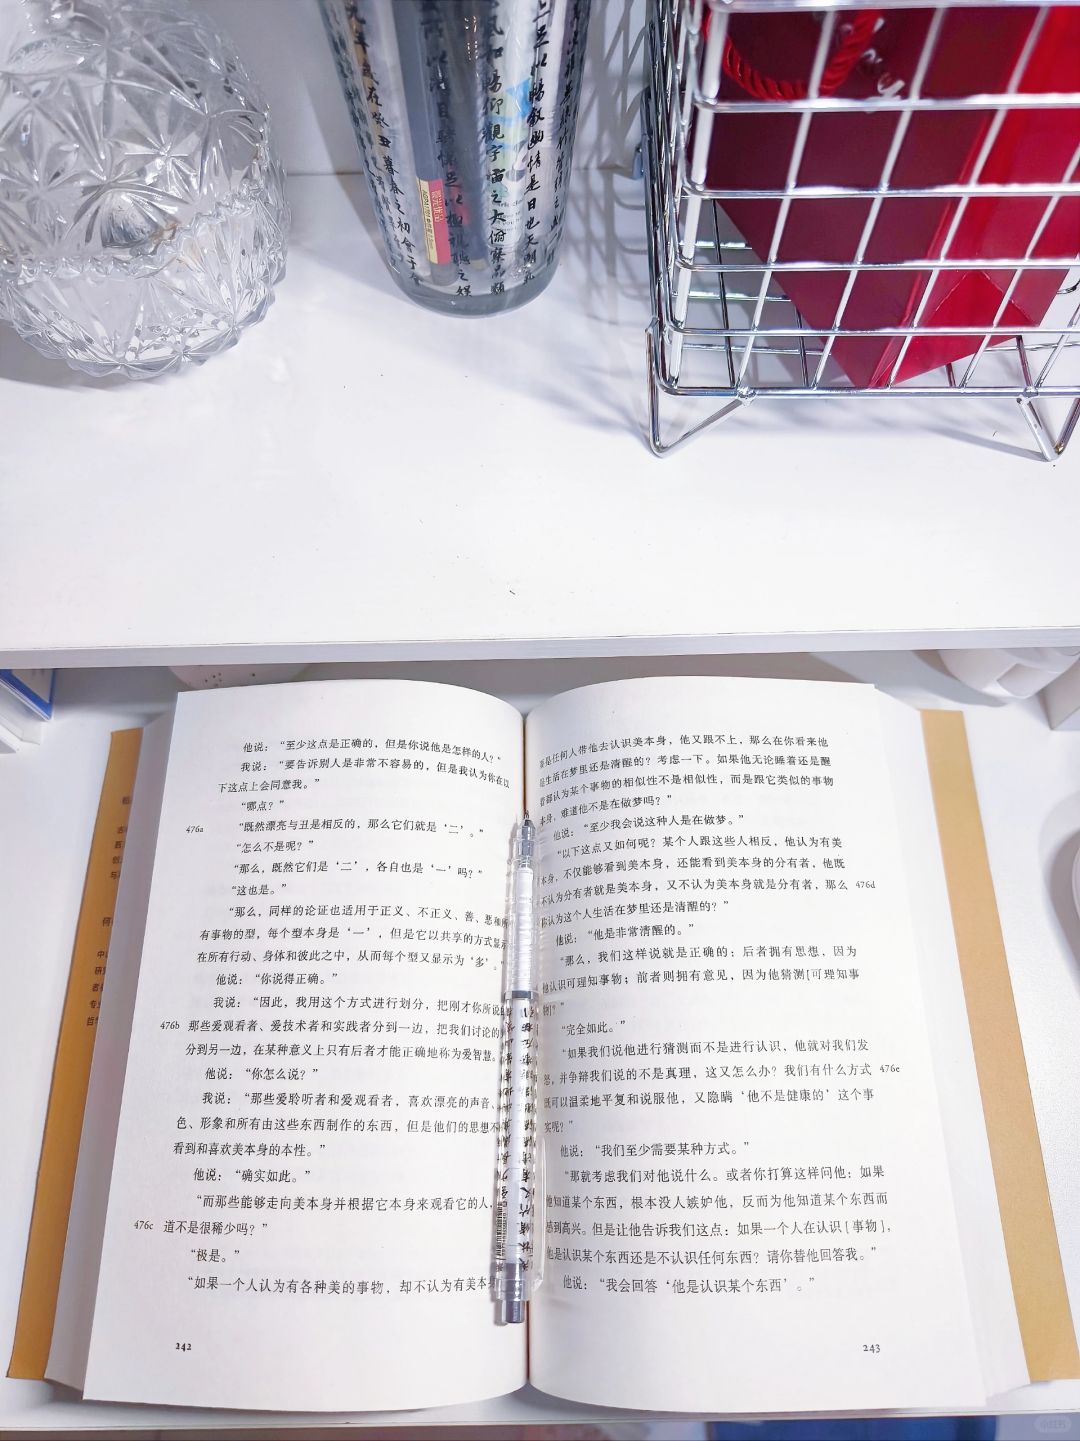 九年歲在癸丑暮春之初會于
以游目騁懷足以極視聽之娛
風和暢仰觀宇宙之大俯察品類
上足以暢敘幽情是日也天朗氣
他说：“至少这点是正确的，但是你说他是怎样的人？”
我说：“要告诉别人是非常不容易的，但是我认为你在以
下这点上会同意我。”
“哪点？”
476a “既然漂亮与丑是相反的，那么它们就是‘二’。”
“怎么不是呢？”
“那么，既然它们是‘二’，各自也是‘一’吗？”
“这也是。”
“那么，同样的论证也适用于正义、不正义、善、恶和所
有事物的型，每个型本身是‘一’，但是它以共享的方式显示
在所有行动、身体和彼此之中，从而每个型又显示为‘多’。”
他说：“你说得正确。”
我说：“因此，我用这个方式进行划分，把刚才你所说的
476b 那些爱观看者、爱技术者和实践者分到一边，把我们讨论的
分到另一边，在某种意义上只有后者才能正确地称为爱智慧
他说：“你怎么说？”
我说：“那些爱聆听者和爱观看者，喜欢漂亮的声音、
色、形象和所有由这些东西制作的东西，但是他们的思想不
看到和喜欢美本身的本性。”
他说：“确实如此。”
“而那些能够走向美本身并根据它本身来观看它的人，
476c 道不是很稀少吗？”
“极是。”
“如果一个人认为有各种美的事物，却不认为有美本
242
是任何人带他去认识美本身，他又跟不上，那么在你看来他
是生活在梦里还是清醒的？考虑一下。如果他无论睡着还是醒
着都认为某个事物的相似性不是相似性，而是跟它类似的事物
本身，难道他不是在做梦吗？”
他说：“至少我会说这种人是在做梦。”
“以下这点又如何呢？某个人跟这些人相反，他认为有美
本身，不仅能够看到美本身，还能看到美本身的分有者，他既
不认为分有者就是美本身，又不认为美本身就是分有者，那么 476d
你认为这个人生活在梦里还是清醒的？”
他说：“他是非常清醒的。”
“那么，我们这样说就是正确的：后者拥有思想，因为
他认识可理知事物；前者则拥有意见，因为他猜测[可理知事
物]？”
“完全如此。”
“如果我们说他进行猜测而不是进行认识，他就对我们发
怒，并争辩我们说的不是真理，这又怎么办？我们有什么方式 476e
既可以温柔地平复和说服他，又隐瞒‘他不是健康的’这个事
实呢？”
他说：“我们至少需要某种方式。”
“那就考虑我们对他说什么。或者你打算这样问他：如果
他知道某个东西，根本没人嫉妒他，反而为他知道某个东西而
感到高兴。但是让他告诉我们这点：如果一个人在认识[事物]，
他是认识某个东西还是不认识任何东西？请你替他回答我。”
他说：“我会回答‘他是认识某个东西’。”
243
小红书